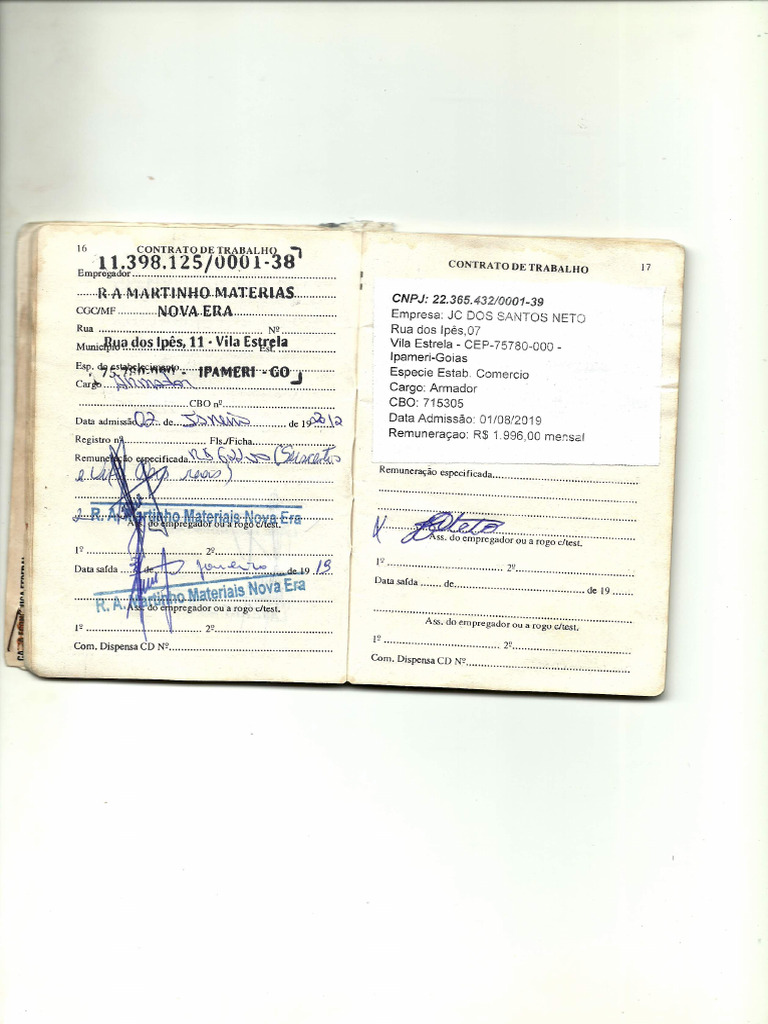 16
CONTRATO DE TRABALHO
11.398.125/0001-38
Empregador
R A MARTINHO MATERIAS
CGC/MF
NOVA ERA
Rua Nº
Rua dos Ipês, 11 - Vila Estrela
Município Est.
Esp. do estabelecimento
IPAMERI - GO
Cargo Armador
CBO nº
Data admissão 02 de Janeiro de 19 2012
Registro nº Fls./Ficha
Remuneração especificada R$
R. A. Martinho Materiais Nova Era
Ass. do empregador ou a rogo c/test.
1º 2º
Data saída de janeiro de 19 13
R. A. Martinho Materiais Nova Era
Ass. do empregador ou a rogo c/test.
1º 2º
Com. Dispensa CD Nº
CONTRATO DE TRABALHO 17
CNPJ: 22.365.432/0001-39
Empresa: JC DOS SANTOS NETO
Rua dos Ipês,07
Vila Estrela - CEP-75780-000 -
Ipameri-Goias
Especie Estab. Comercio
Cargo: Armador
CBO: 715305
Data Admissão: 01/08/2019
Remuneraçao: R$ 1.996,00 mensal
Remuneração especificada
Ass. do empregador ou a rogo c/test.
1º 2º
Data saída de de 19
Ass. do empregador ou a rogo c/test.
1º 2º
Com. Dispensa CD Nº